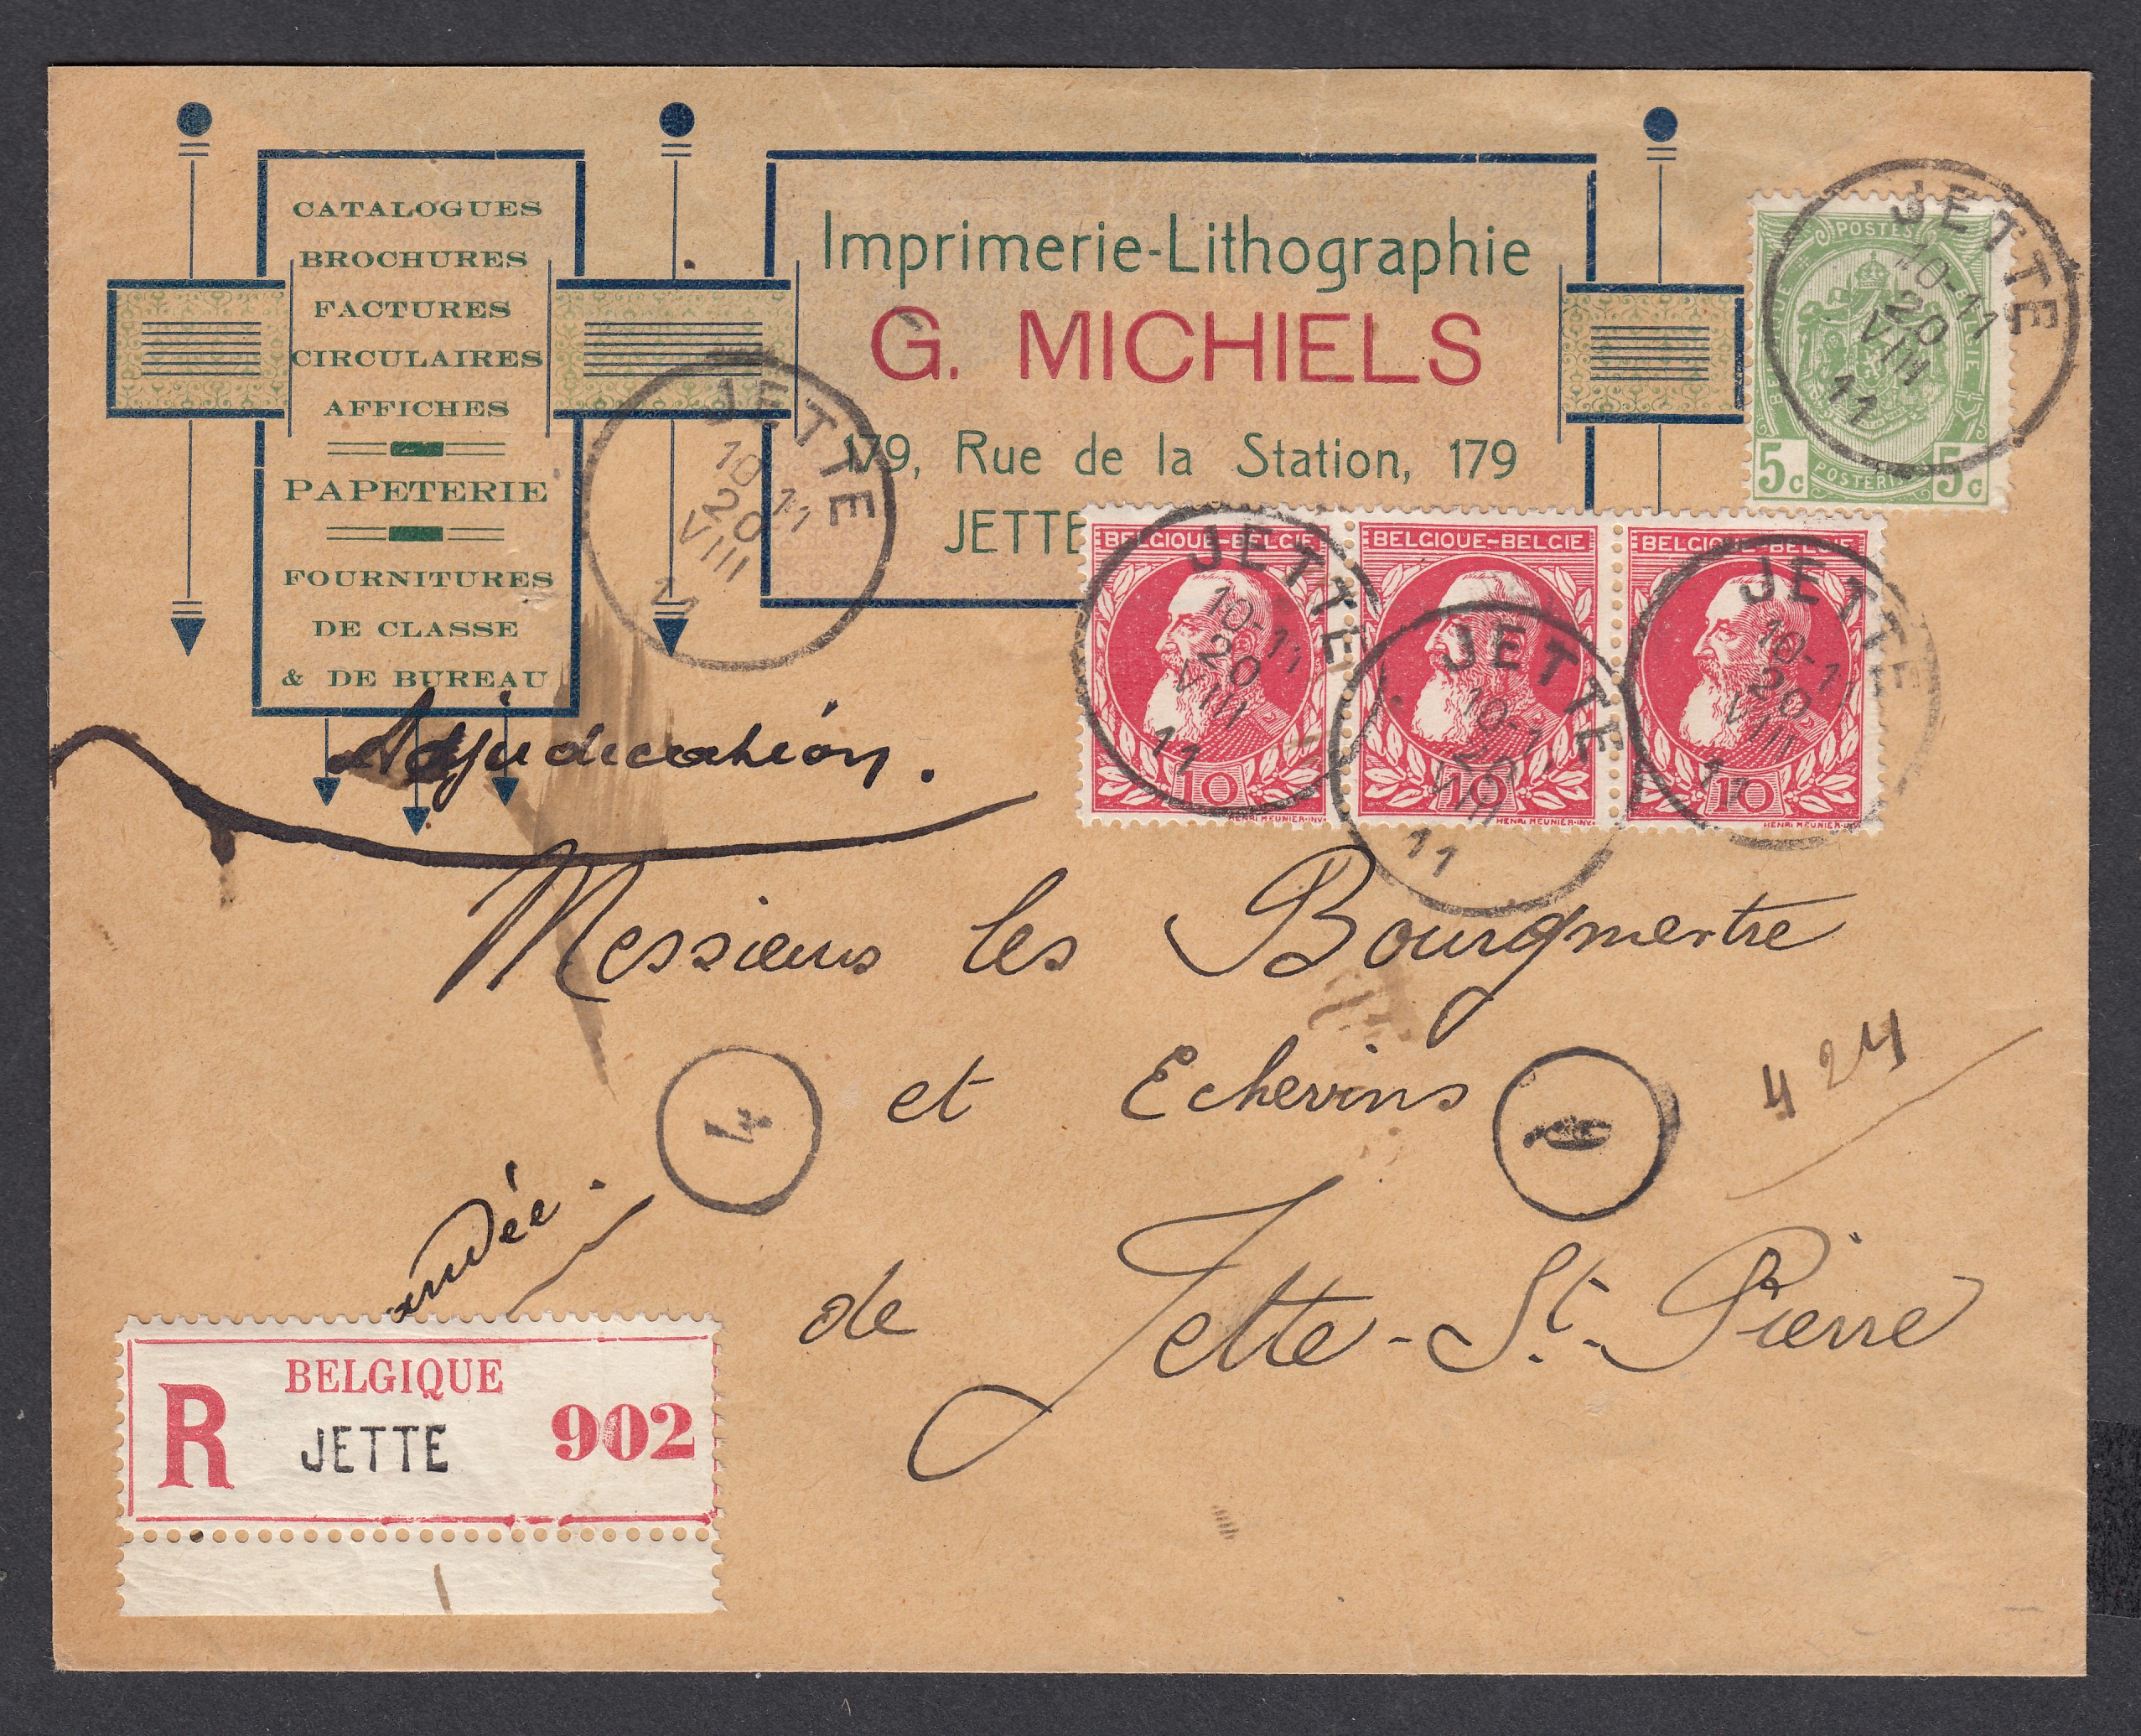 CATALOGUES
BROCHURES
FACTURES
CIRCULAIRES
AFFICHES
PAPETERIE
FOURNITURES
DE CLASSE
& DE BUREAU
Imprimerie-Lithographie
G. MICHIELS
179, Rue de la Station, 179
JETTE
POSTES
BELGIQUE BELGIE
5c POSTERIJEN 5c
JETTE
10-11
20
VIII
11
JETTE
10 11
20
VIII
11
BELGIQUE-BELGIE
10
HENRI MEUNIER-INV.
BELGIQUE-BELGIE
10
HENRI MEUNIER-INV.
BELGIQUE-BELGIE
10
HENRI MEUNIER-INV.
JETTE
10-11
20
VIII
11
JETTE
10-1
20
VIII
11
JETTE
10-11
20
VIII
11
Adjudication.
Messieurs les Bourgmestre
et Echevins
4
424
de Jette-St.-Pierre
andée.
BELGIQUE
R JETTE 902